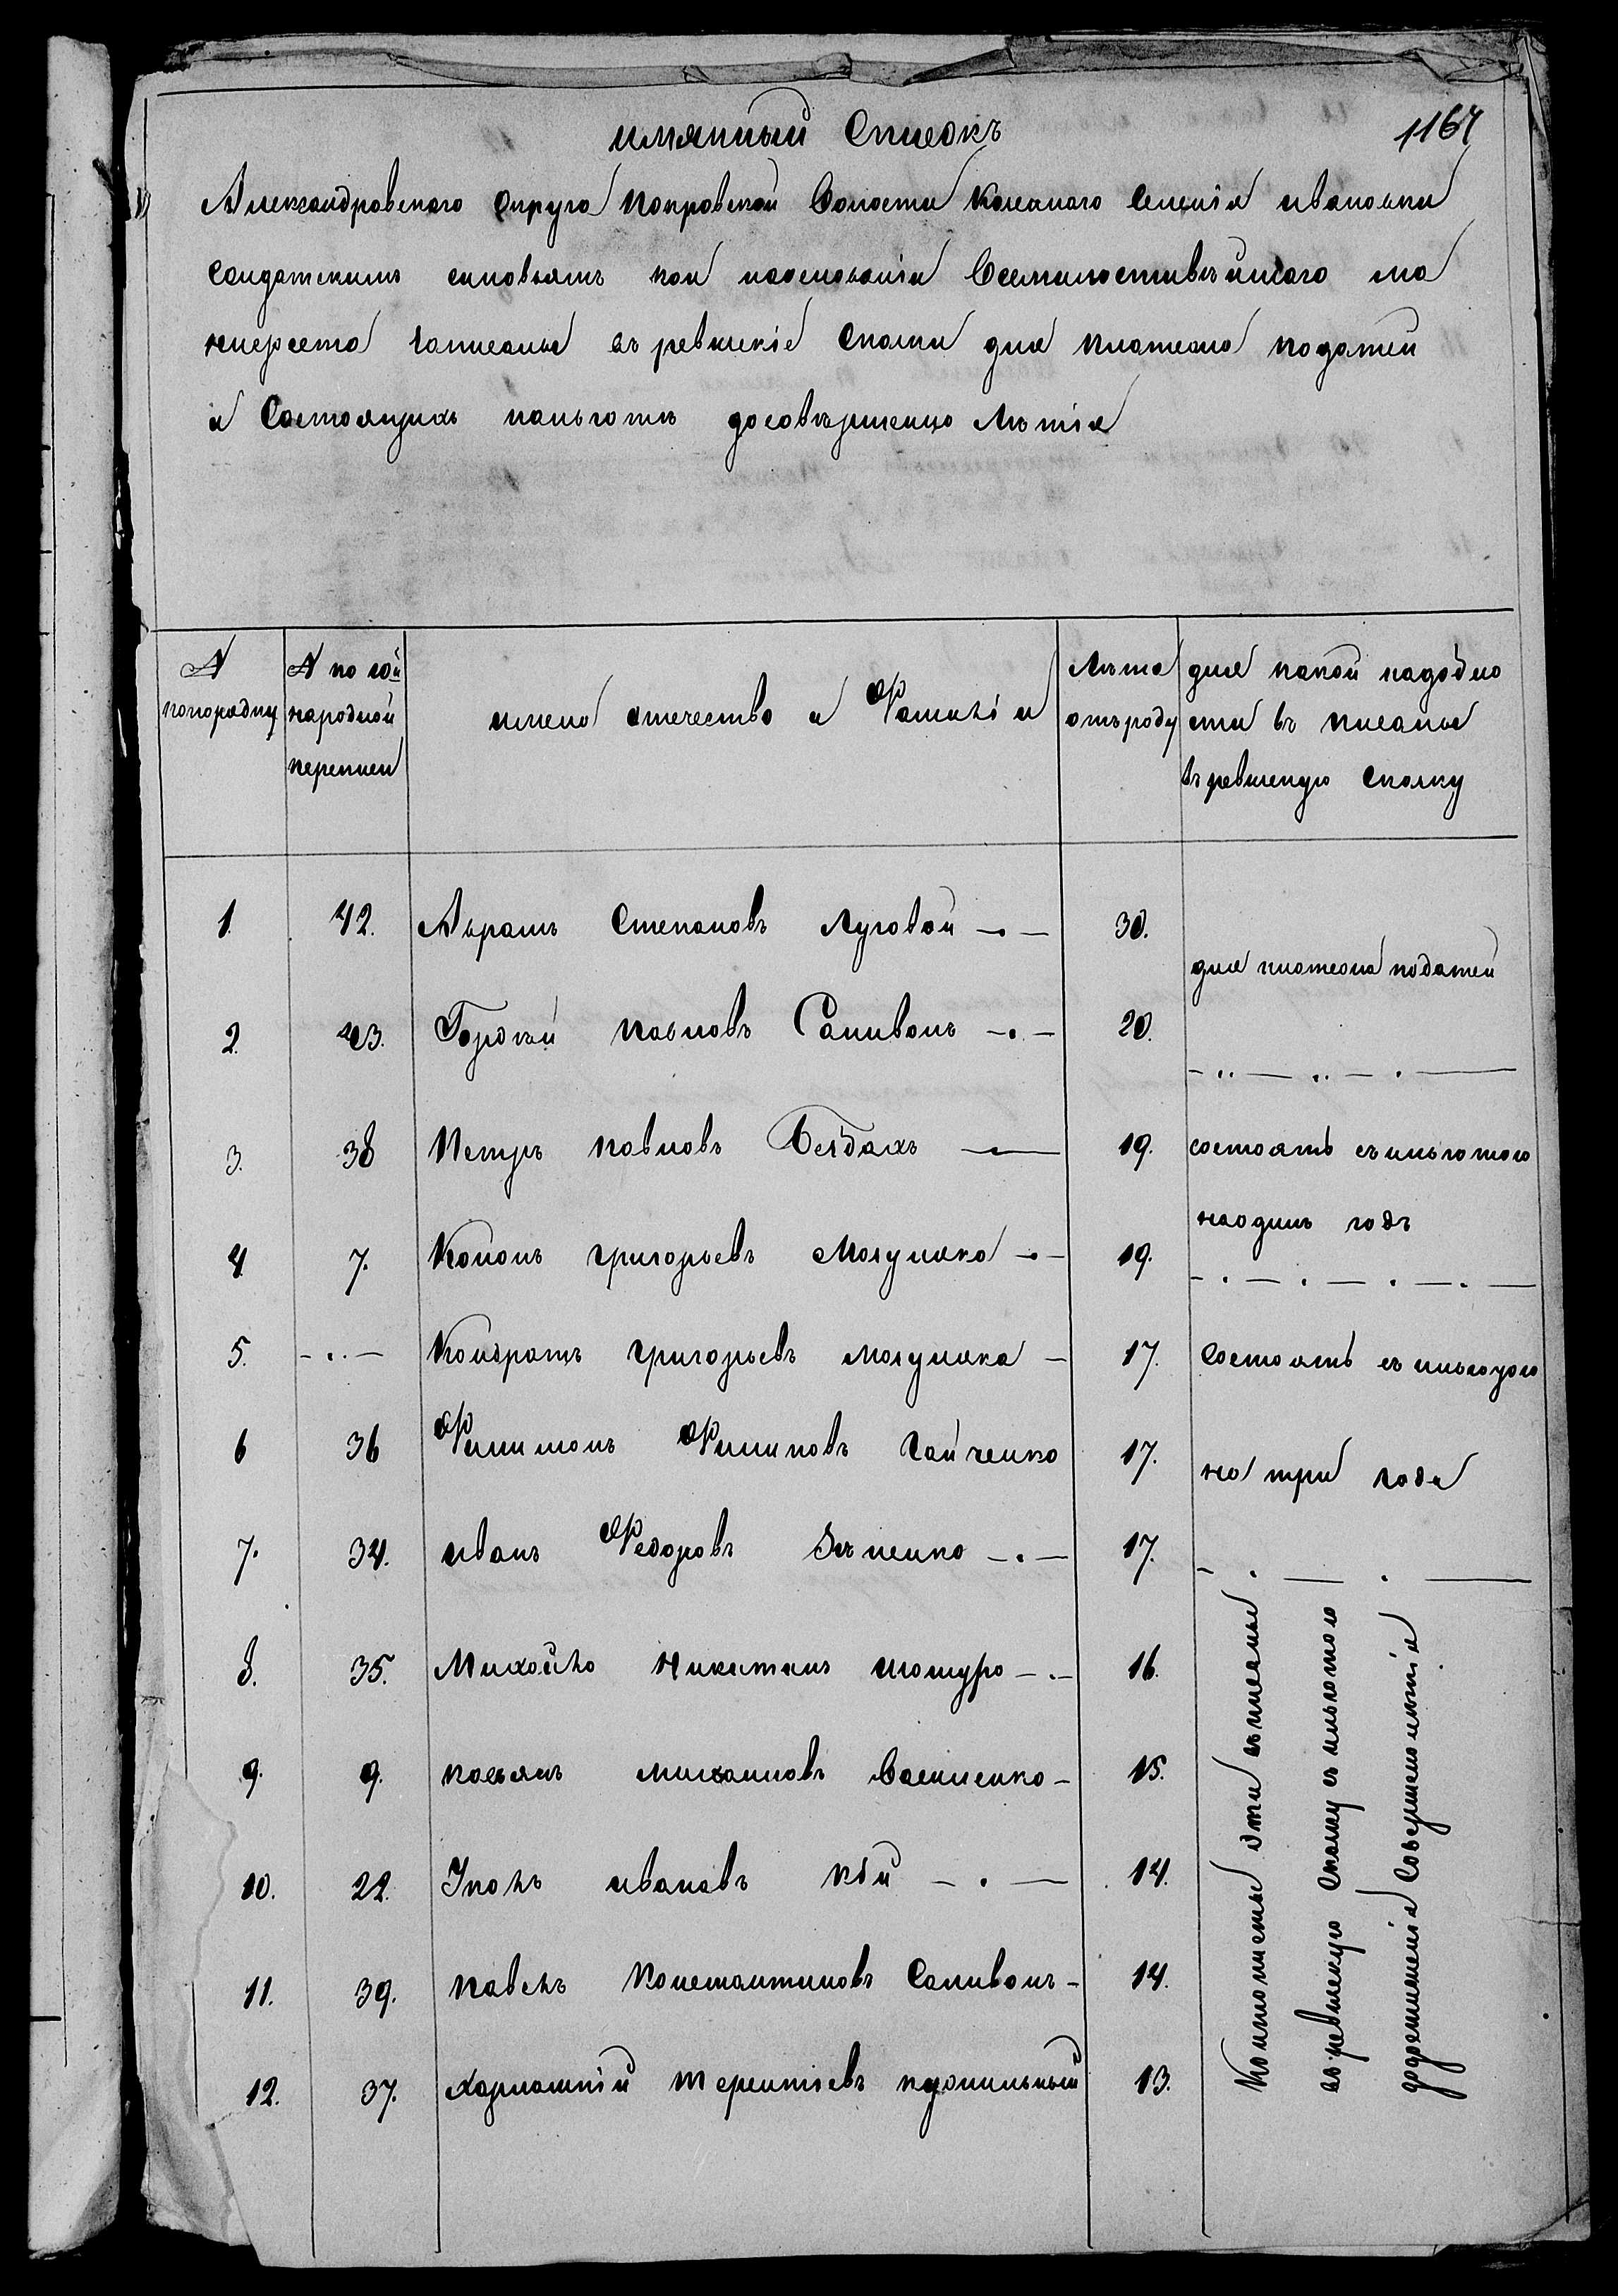 имянный Списокъ
1167
Александровского Округа Покровской Волости Казеннаго Селенія ивановки
Солдатскимъ сыновьямъ кои наосновании Всемилостивѣйшаго ма
нифеста записаны въ ревизкіе Сказки для платежа податей
и Состоящихъ на льготѣ досовѣршенно лѣтія
№ попорядку
№ по 10й народной переписи
имена отечество и Фамилія
Лѣта отъроду
для какой надобно
сти въ писаны
въ ревизскую Сказку
1. 42. Абрамъ Степановъ Луговой 30.
для платежа податей
2. 43. Гордѣй Павловъ Саливонъ 20.
3. 38 Петръ Павловъ Бейдахъ 19. состоятъ съ льготою
наодинъ годъ
4. 7. Кононъ григорьевъ 19.
5. Кондратъ григорьевъ 17. Состоятъ съ льготою
6 36 Филимонъ Филиповъ Гайченко 17.
на три года
7. 34. иванъ Федоровъ 17.
8. 35. Михайло Никитинъ шошура 16.
9. 9. касьянъ михаиловъ Василенко 15.
10. 22. Іполъ ивановъ Кій 14.
11. 39. павелъ Констаитиновъ Саливонъ 14.
12. 37. харлампій терентіевъ 13.
Комплекты эти вписаны
въ ревизскую Сказку съ льготою
додостиженія Совершенолѣтія